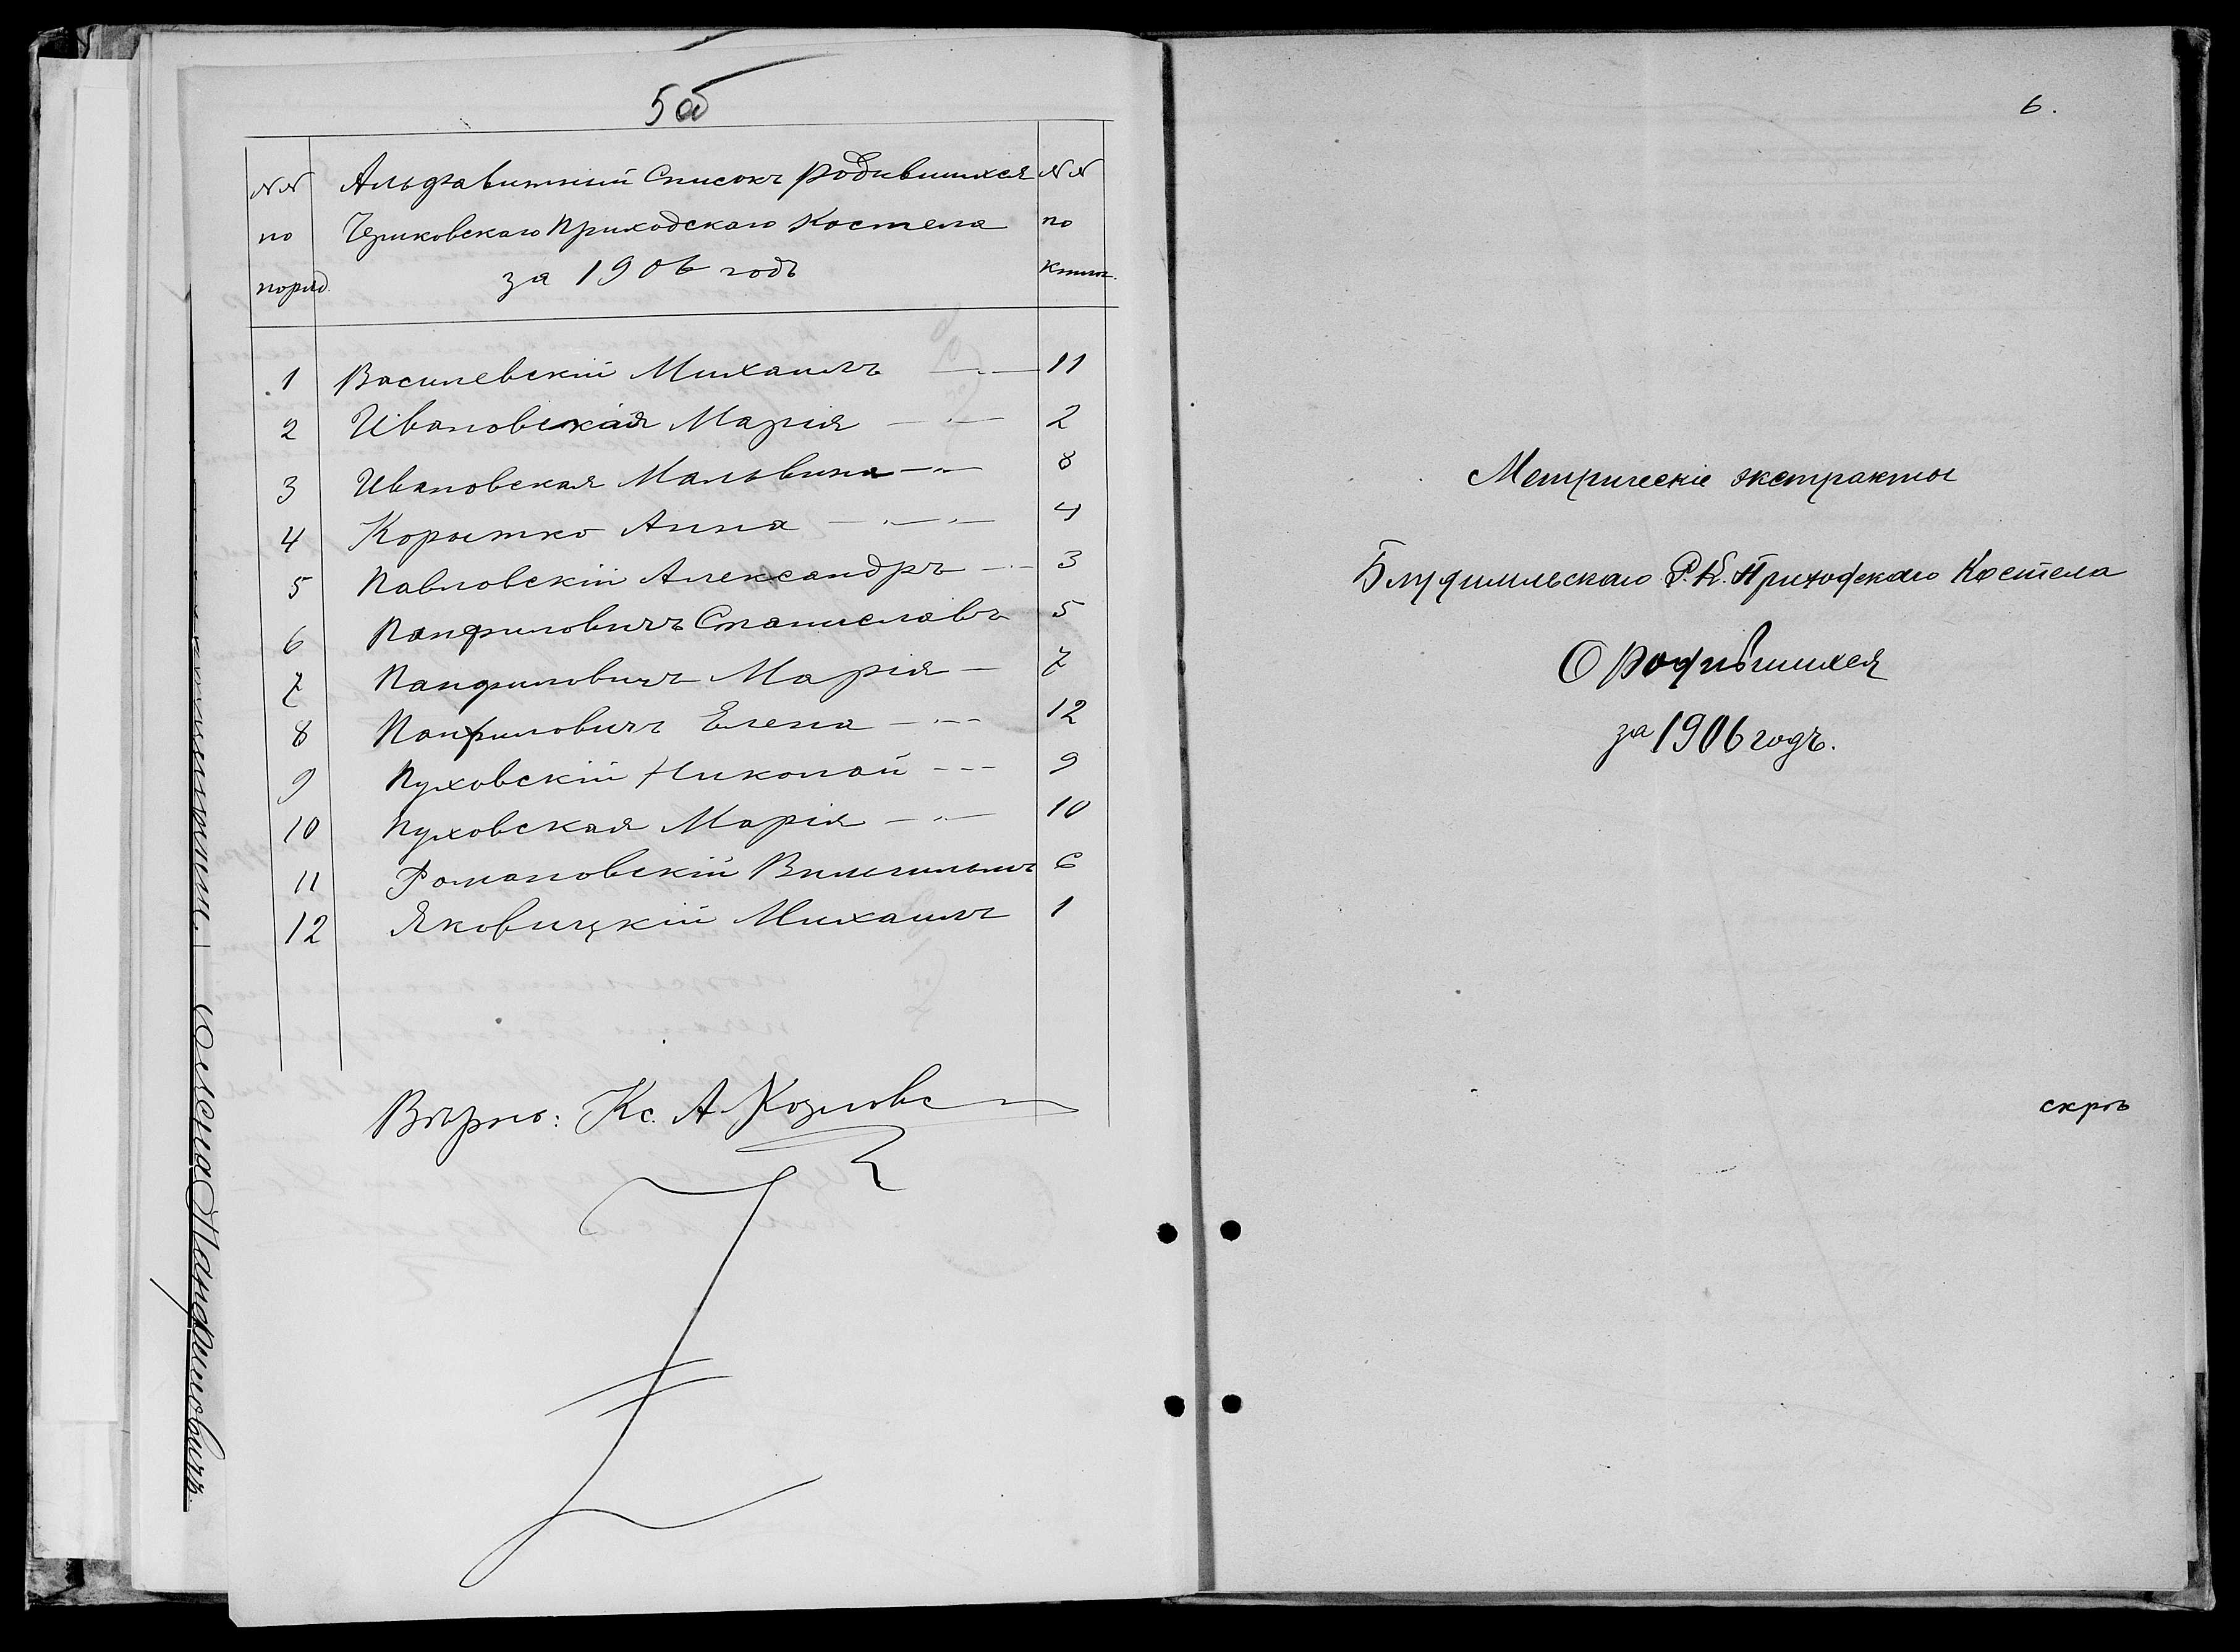 5 об
NN Альфавитный Списокъ родившихся NN
по Чериковскаго Приходскаго Костела по
поряд. за 1906 годъ книг.
1 Василевскій Михаилъ 11
2 Ивановская Марія 2
3 Ивановская Мальвина 8
4 Корытко Анна 4
5 Павловскій Александръ 3
6 Панфиловичъ Станиславъ 5
7 Панфиловичъ Марія 7
8 Панфиловичъ Елена 12
9 Пуховскій Николай 9
10 Пуховская Марія 10
11 Романовскій Вильгельмъ 6
12 Яковицкій Михаилъ 1
Вѣрно: Кс. А Козловс
Панфиловичъ.
6.
Метрическіе экстракты
Р. К. Приходскаго Костела
О родившихся
за 1906 годъ.
скрѣ